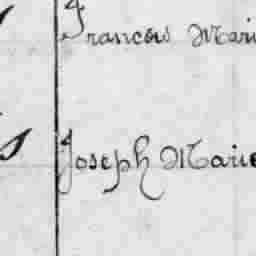 Francois Mari
Joseph Marie